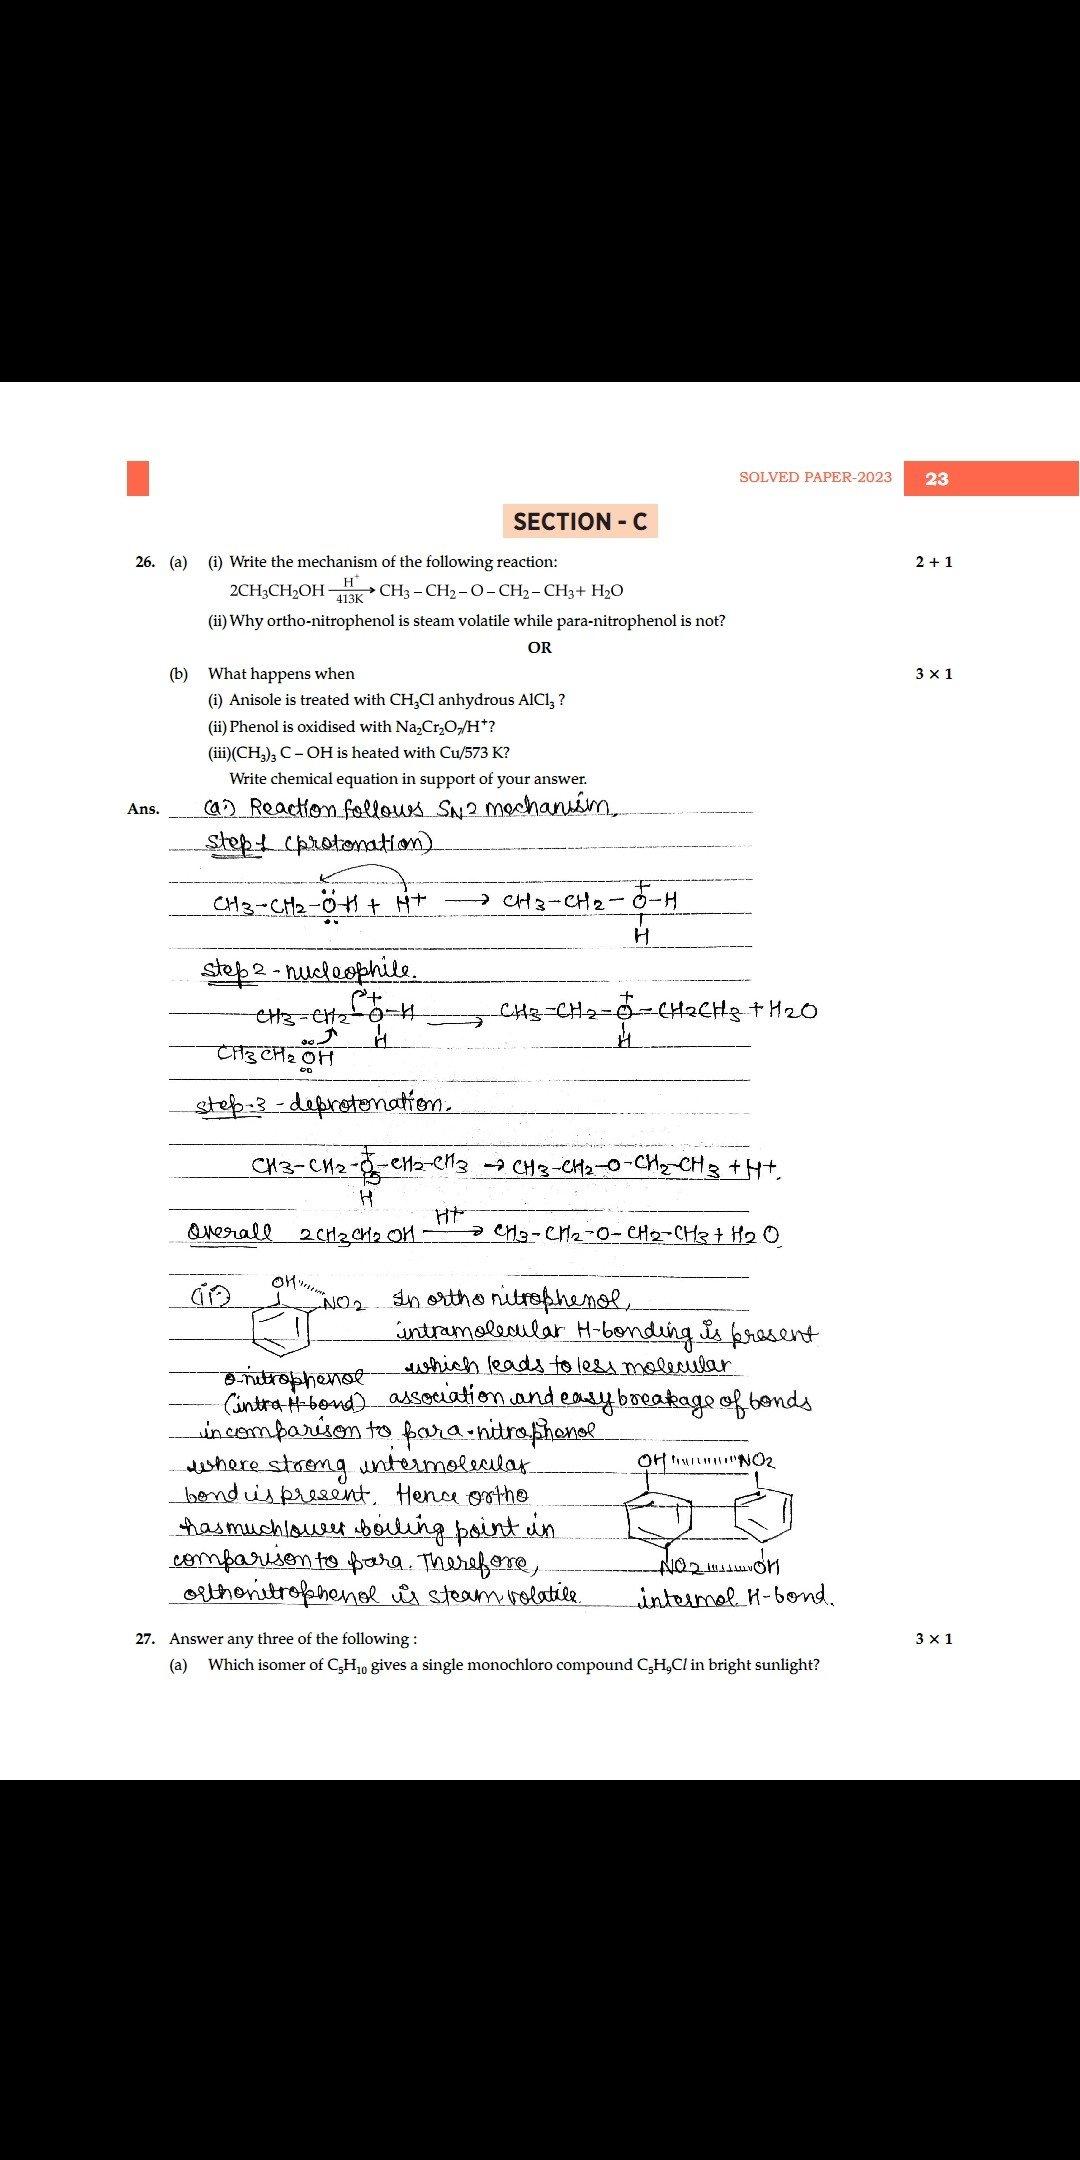 SOLVED PAPER-2023 23
SECTION - C
26. (a) (i) Write the mechanism of the following reaction: 2 + 1
2CH₃CH₂OH —H⁺/413K→ CH₃ – CH₂ – O – CH₂ – CH₃ + H₂O
(ii) Why ortho-nitrophenol is steam volatile while para-nitrophenol is not?
OR
(b) What happens when 3 × 1
(i) Anisole is treated with CH₃Cl anhydrous AlCl₃ ?
(ii) Phenol is oxidised with Na₂Cr₂O₇/H⁺?
(iii)(CH₃)₃ C – OH is heated with Cu/573 K?
Write chemical equation in support of your answer.
Ans. (a i) Reaction follows SN2 mechanism.
Step 1 (protonation)
CH3-CH2-ÖH + H+ → CH3-CH2-O⁺-H
H
Step 2 - nucleophile.
CH3-CH2-O⁺-H → CH3-CH2-O⁺-CH2CH3 + H2O
H H
CH3CH2ÖH
Step-3 - deprotonation.
CH3-CH2-O⁺-CH2-CH3 → CH3-CH2-O-CH2-CH3 + H+.
H
Overall 2CH3CH2OH —H+→ CH3-CH2-O-CH2-CH3 + H2O
(ii) OH NO2 In ortho nitrophenol,
intramolecular H-bonding is present
o-nitrophenol which leads to less molecular
(intra H-bond) association and easy breakage of bonds
in comparison to para-nitrophenol
where strong intermolecular OH NO2
bond is present. Hence ortho
has much lower boiling point in
comparison to para. Therefore, NO2 OH
orthonitrophenol is steam volatile. intermol. H-bond.
27. Answer any three of the following : 3 × 1
(a) Which isomer of C₅H₁₀ gives a single monochloro compound C₅H₉Cl in bright sunlight?